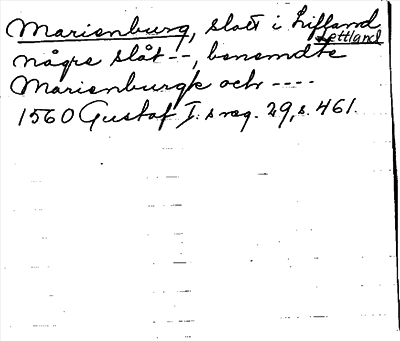 Marienburg, slott i Lifland
Lettland
några slåt--, benemdte
Marienburgk och ----
1560 Gustaf I:s reg. 29, s. 461.